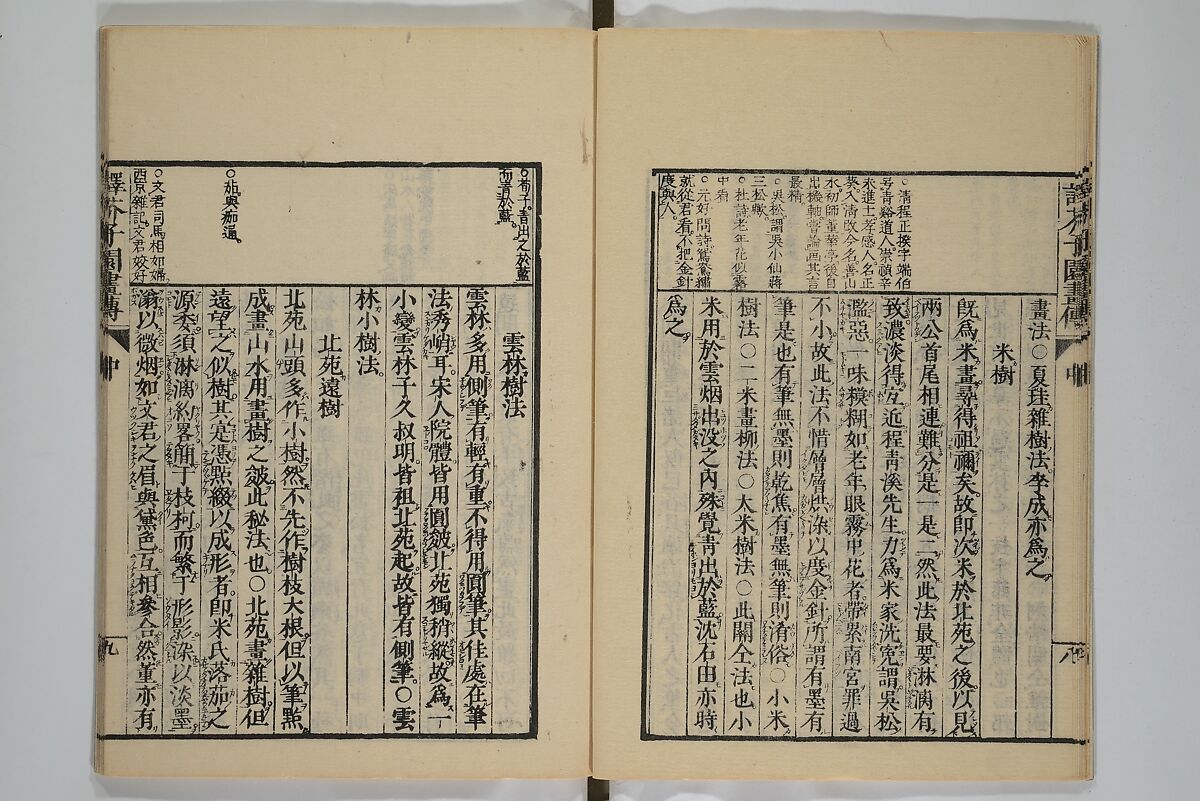 譯芥子園畫傳
中
八
○清程正揆字端伯
号青谿道人崇禎辛
未進士孝感人名正
葵入清改今名善山
水初師董華亭後自
出機軸嘗論画其言
最精
○吳松謂吳小仙蔣
三松歟
○杜詩老年花似霧
中看
○元好問詩鴛鴦繡
就從君看不把金針
度與人
畫法○夏珪雜樹法李成亦爲之
米樹
既爲米畫尋得祖禰矣故即次米於北苑之後以見
兩公首尾相連難分是一是二然此法最要淋漓有
致濃淡得互近程青溪先生力爲米家洗寃謂吳松
濫惡一味糢糊如老年眼霧中花者帶累南宮罪過
不小故此法不惜臂臂烘染以度金針所謂有墨有
筆是也有筆無墨則乾焦有墨無筆則淆俗○小米
樹法○二米畫柳法○大米樹法○此關仝法也小
米用於雲烟出没之内殊覺青出於藍沈石田亦時
爲之
○荀子青出之於藍
而青於藍
○茄與痂通
○文君司馬相如婦
西京雜記文君姣好
雲林樹法
雲林多用側筆有輕有重不得用圓筆其佳處在筆
法秀峭耳宋人院體皆用圓皴北苑獨稍縱故爲一
小變雲林子久叔明皆祖北苑起故皆有側筆○雲
林小樹法
北苑遠樹
北苑山頭多作小樹然不先作樹枝大根但以筆點
成畫山水用畫樹之皴此秘法也○北苑畫雜樹但
遠望之似樹其寔憑點綴以成形者即米氏落茄之
源委須淋漓約畧簡于枝柯而繁于形影染以淡墨
滃以微烟如文君之眉與黛色互相參合然董亦有
譯芥子園畫傳
中
九